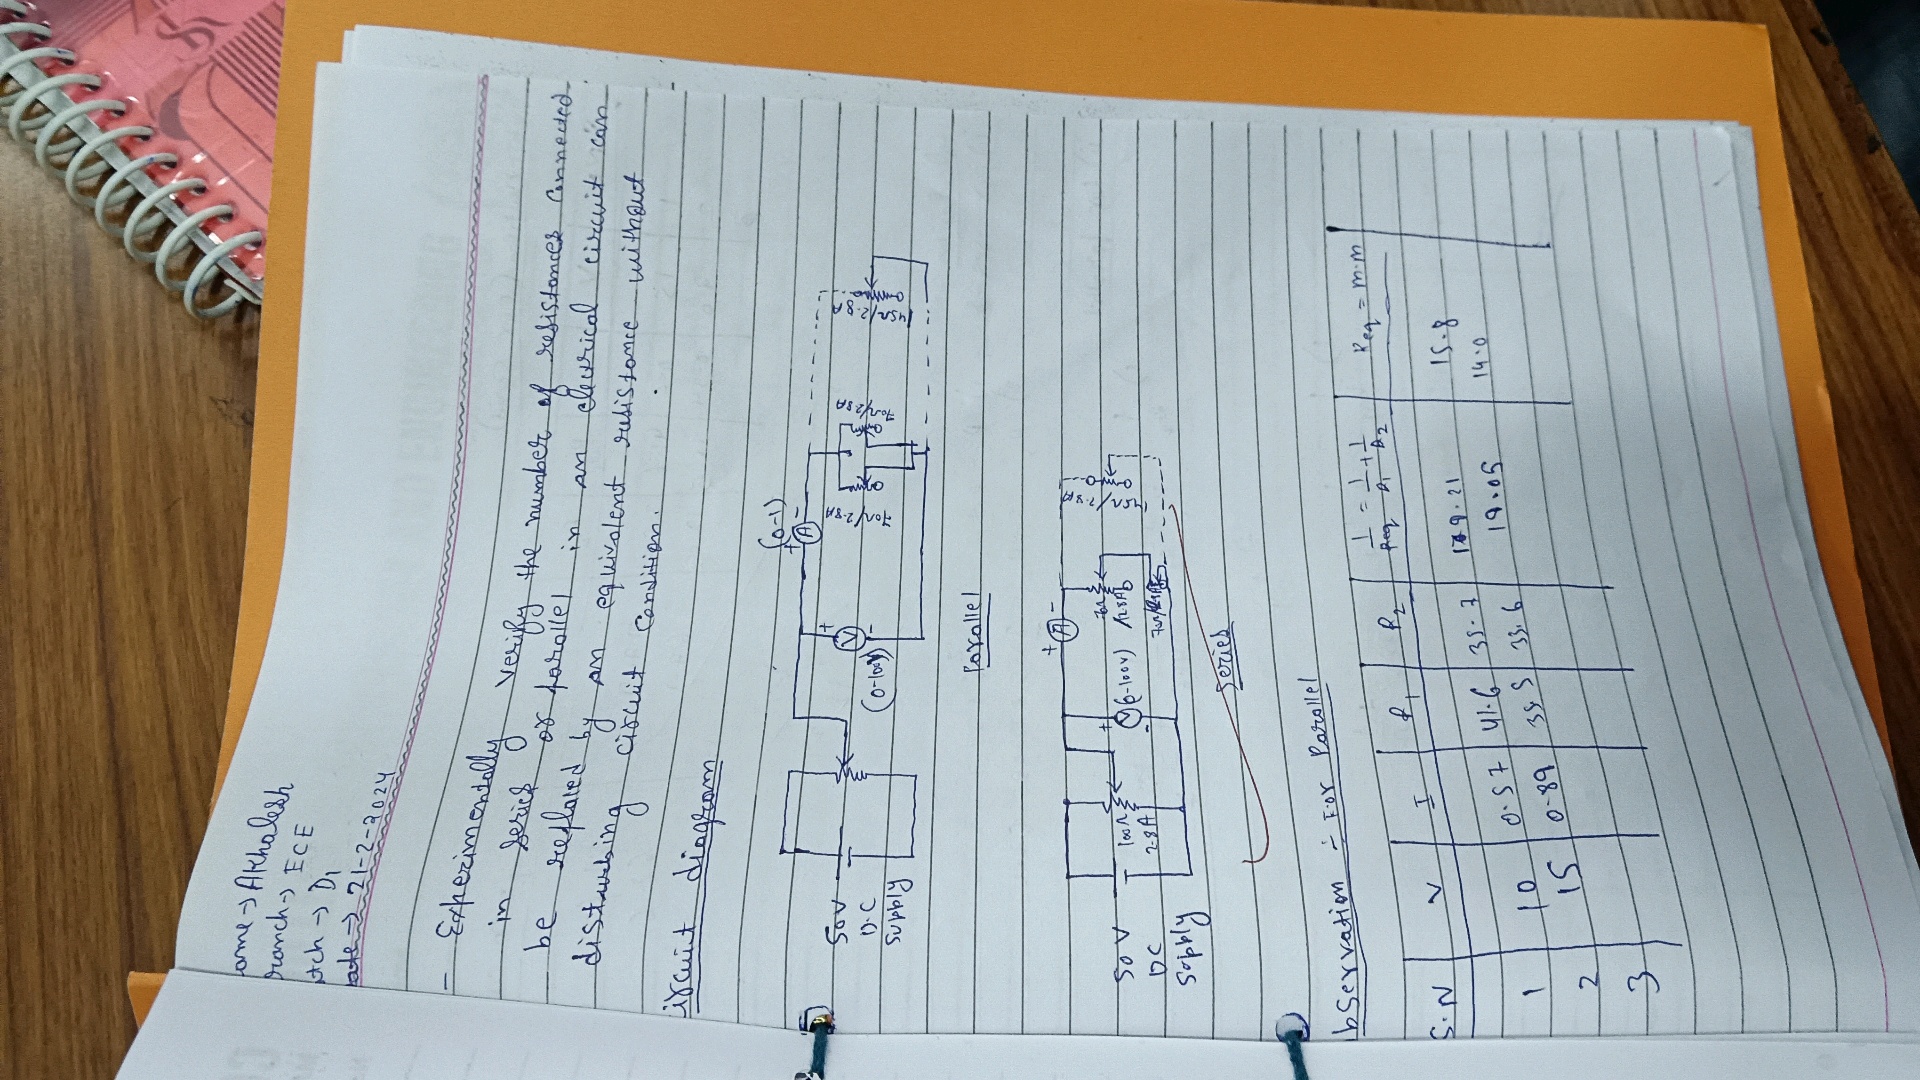 ame → Akhalesh
ranch → ECE
tch → D1
ate → 21-2-2024
- Experimentally verify the number of resistances connected
in series or parallel in an electrical circuit can
be replaced by an equivalent resistance without
disturbing circuit condition.
ircuit diagram
50V
D.C
Supply
+
V
-
(0-100V)
(0-1)
+ A -
70Ω/2.8A
70Ω/2.8A
45Ω/2.8A
Parallel
50V
DC
Supply
100Ω
2.8A
+
V
(0-100V)
-
+ A -
70Ω
/2.8A
45Ω/2.8A
Series
bservation ÷ For Parallel
S.N V I R1 R2 1/Req = 1/R1 + 1/R2 Req = m.m
1 10 0.57 41.6 35.7 19.21 15.8
2 15 0.89 35.5 33.6 19.05 14.0
3